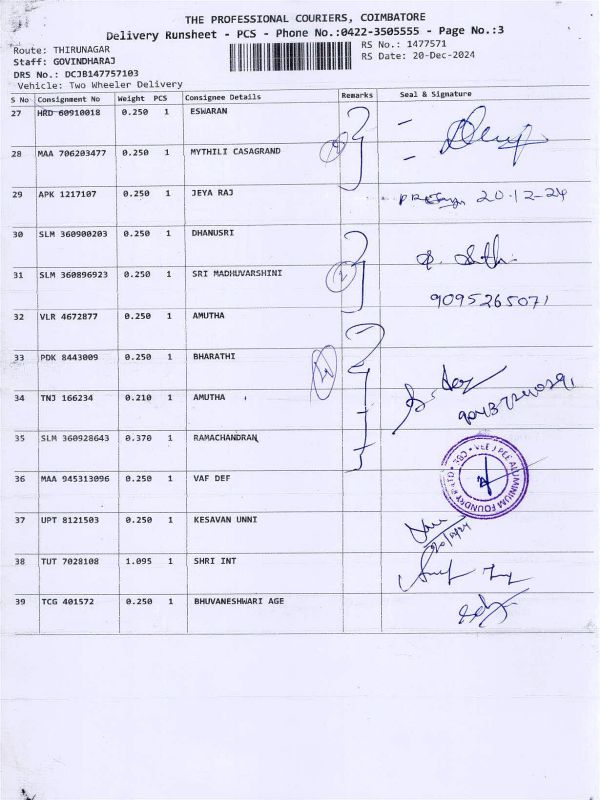 THE PROFESSIONAL COURIERS, COIMBATORE
Delivery Runsheet - PCS - Phone No.:0422-3505555 - Page No.:3
Route: THIRUNAGAR
RS No.: 1477571
Staff: GOVINDHARAJ
RS Date: 20-Dec-2024
DRS No.: DCJB147757103
Vehicle: Two Wheeler Delivery
S No Consignment No Weight PCS Consignee Details Remarks Seal & Signature
27 HRD 60910018 0.250 1 ESWARAN
28 MAA 706203477 0.250 1 MYTHILI CASAGRAND
29 APK 1217107 0.250 1 JEYA RAJ 20-12-24
30 SLM 360900203 0.250 1 DHANUSRI
31 SLM 360896923 0.250 1 SRI MADHUVARSHINI
9095265071
32 VLR 4672877 0.250 1 AMUTHA
33 PDK 8443009 0.250 1 BHARATHI
34 TNJ 166234 0.210 1 AMUTHA
35 SLM 360928643 0.370 1 RAMACHANDRAN
VEE J PEE ALUMINIUM FOUNDRY P LTD • CBE •
36 MAA 945313096 0.250 1 VAF DEF
37 UPT 8121503 0.250 1 KESAVAN UNNI
38 TUT 7028108 1.095 1 SHRI INT
39 TCG 401572 0.250 1 BHUVANESHWARI AGE